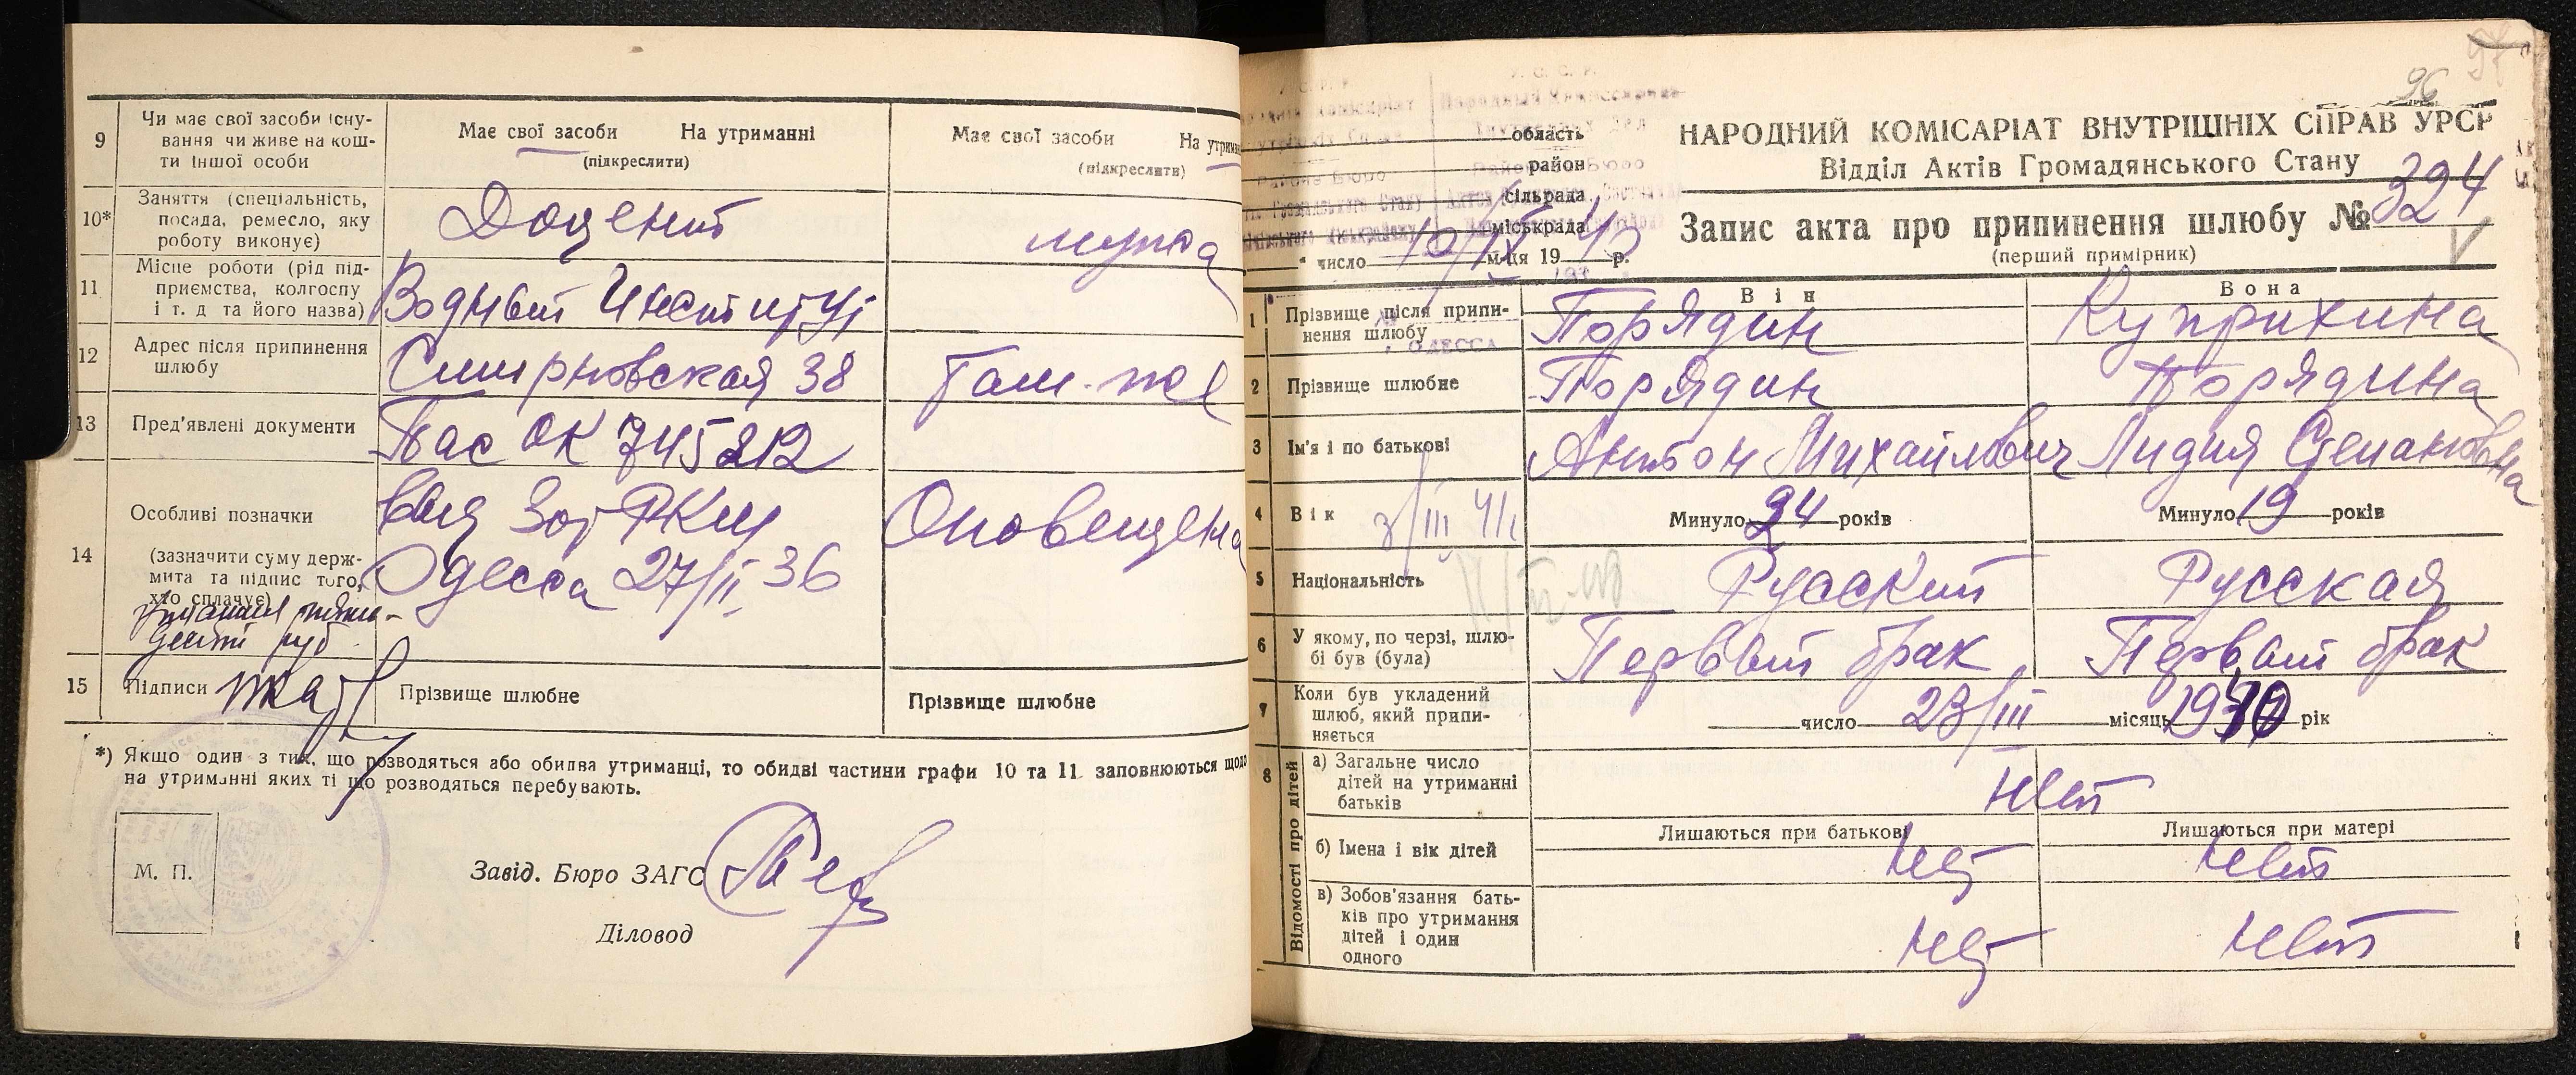 9
Чи має свої засоби існу-
вання чи живе на кош-
ти іншої особи
Має свої засоби На утриманні
(підкреслити)
Має свої засоби На утрима
(підкреслити)
10*
Заняття (спеціальність,
посада, ремесло, яку
роботу виконує)
Доцент
мужа
11
Місце роботи (рід під-
приємства, колгоспу
і т. д та його назва)
Водный Институт
12
Адрес після припинення
шлюбу
Смирновская 38
Там-же
13
Пред'явлені документи
Пас ОК 745212
14
Особливі позначки
(зазначити суму держ-
мита та підпис того,
хто сплачує)
руб
Одесса 27/II 36
Оповещена
15
Підписи
Прізвище шлюбне
Прізвище шлюбне
*) Якщо один з тих, що розводяться або обидва утриманці, то обидві частини графи 10 та 11 заповнюються щодо
на утриманні яких ті що розводяться перебувають.
М. П.
Завід. Бюро ЗАГС
Діловод
96
область
район
сільрада
міськрада
число 10/IX м-ця 1940 р.
ОДЕССА
НАРОДНИЙ КОМІСАРІАТ ВНУТРІШНІХ СПРАВ УРСР
Відділ Актів Громадянського Стану
Запис акта про припинення шлюбу № 324
(перший примірник)
Він
Вона
1
Прізвище після припи-
нення шлюбу
Порядин
Куприхина
2
Прізвище шлюбне
Порядин
Порядина
3
Ім'я і по батькові
Антон Михайлович
Лидия Степановна
4
Вік
3/III 41
Минуло 24 років
Минуло 19 років
5
Національність
Русский
Русская
6
У якому, по черзі, шлю-
бі був (була)
Первый брак
Первый брак
7
Коли був укладений
шлюб, який припи-
няється
число 23/III місяць 1940 рік
8
Відомості про дітей
а) Загальне число
дітей на утриманні
батьків
нет
б) Імена і вік дітей
Лишаються при батькові
Лишаються при матері
нет
нет
в) Зобов'язання бать-
ків про утримання
дітей і один
одного
нет
нет